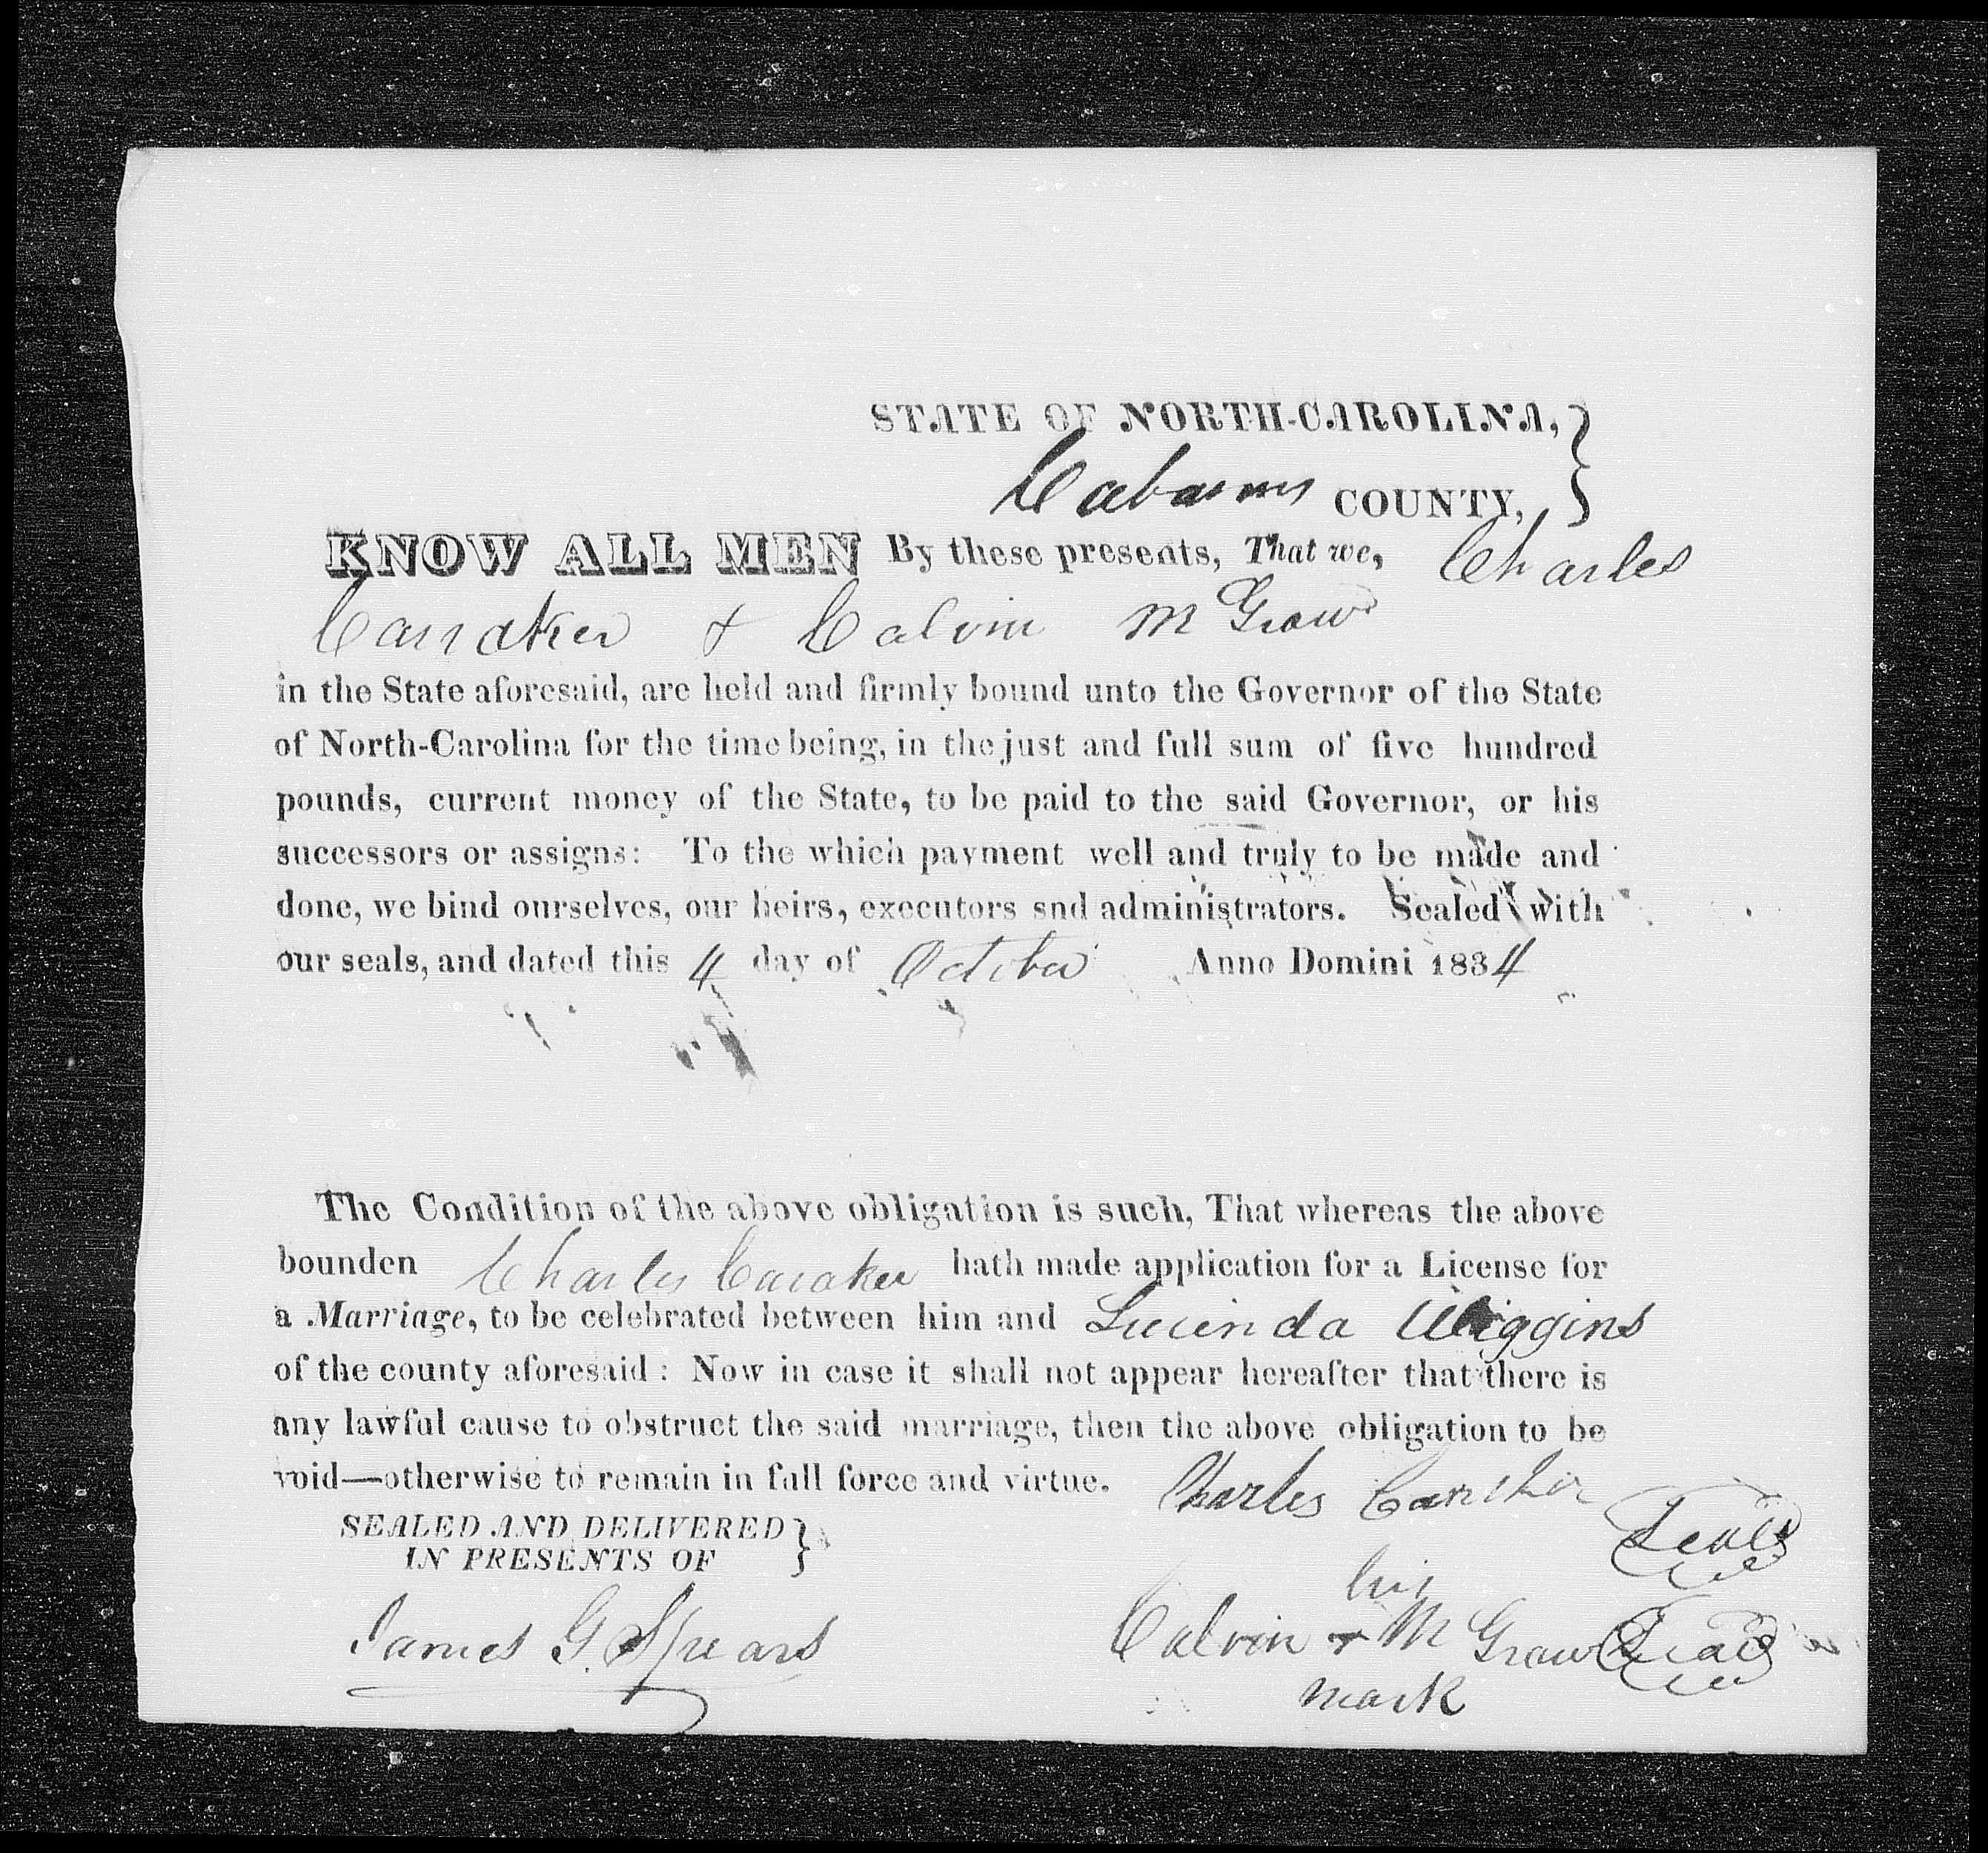 STATE OF NORTH-CAROLINA,
Cabarrus COUNTY,
KNOW ALL MEN By these presents, That we, Charles
Carraker & Calvin McGraw
in the State aforesaid, are held and firmly bound unto the Governor of the State
of North-Carolina for the time being, in the just and full sum of five hundred
pounds, current money of the State, to be paid to the said Governor, or his
successors or assigns: To the which payment well and truly to be made and
done, we bind ourselves, our heirs, executors snd administrators. Sealed with
our seals, and dated this 4 day of October Anno Domini 1834
The Condition of the above obligation is such, That whereas the above
bounden Charles Caraker hath made application for a License for
a Marriage, to be celebrated between him and Lucinda Wiggins
of the county aforesaid: Now in case it shall not appear hereafter that there is
any lawful cause to obstruct the said marriage, then the above obligation to be
void—otherwise to remain in full force and virtue. Charles
Seal
SEALED AND DELIVERED
IN PRESENTS OF
his
James G. Spears Calvin + McGraw Seal
mark